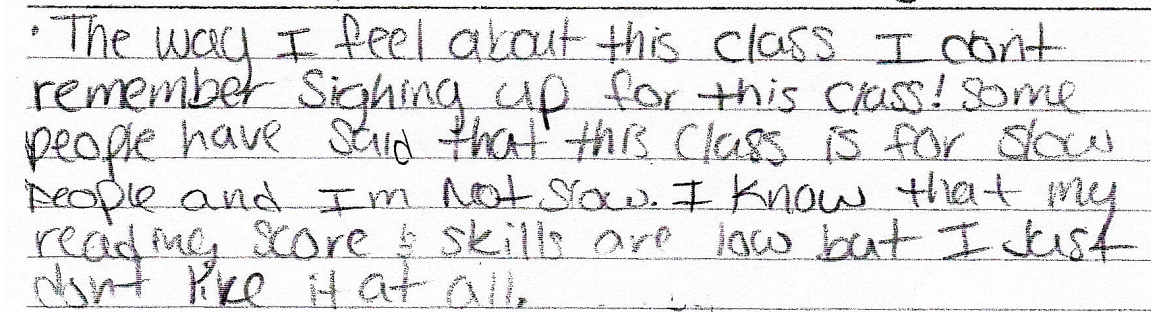 · The way I feel about this class I dont
remember Sighing up for this class! Some
people have Said that this Class is for slow
people and I'm Not slow. I know that my
reading score & skills are low but I Just
dont like it at all.